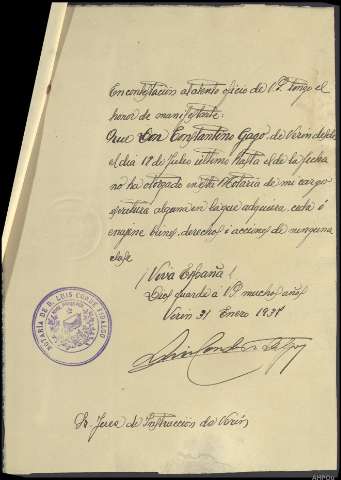 En contestación al atento oficio de V.S. tengo el
honor de manifestarle:
Que Don Constantino Gago, de Verín desde
el dia 18 de Julio último hasta el de la fecha
no ha otorgado en esta Notaria de mi cargo
escritura alguna en la que adquiera, ceda ó
enajene bienes, derechos ó acciones de ninguna
clase
¡Viva España!
Dios guarde á V.S. muchos años
Verin 31 Enero 193
NOTARÍA DE D. LUIS CONDE FIDALGO
Sr. Juez de Instrucción de Verín
AHPOu